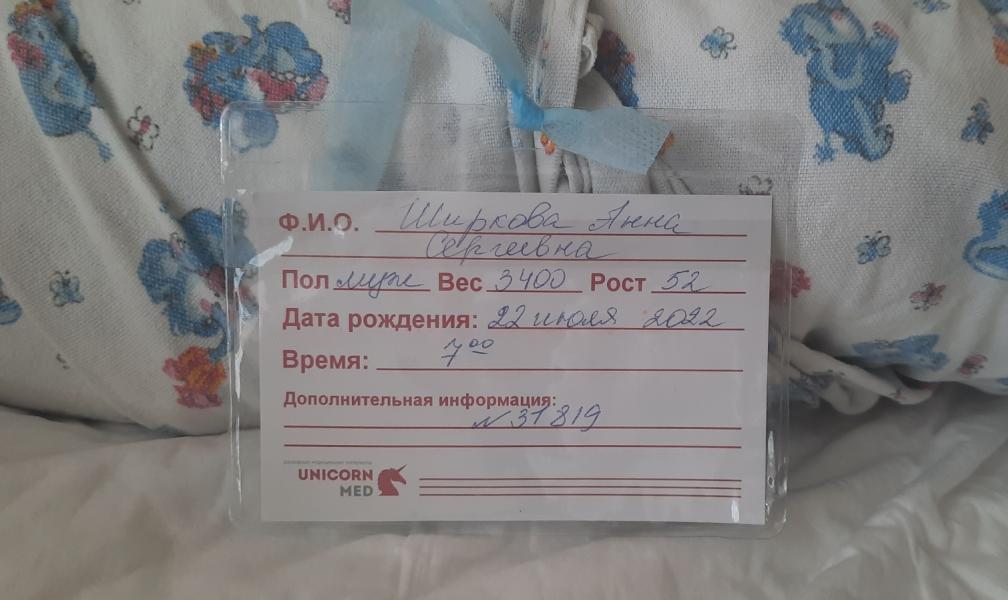 Ф.И.О. Ширкова Анна
Сергеевна
Пол муж Вес 3400 Рост 52
Дата рождения: 22 июля 2022
Время: 7 00
Дополнительная информация:
N 31819
UNICORN
MED